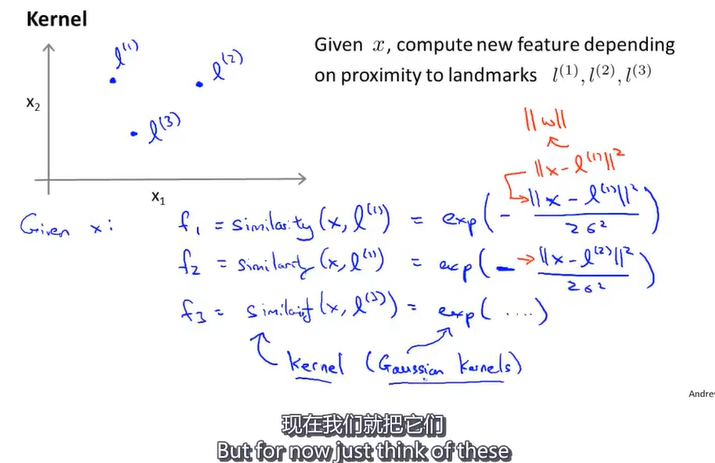 Kernel
Given x, compute new feature depending
on proximity to landmarks l⁽¹⁾, l⁽²⁾, l⁽³⁾
l⁽¹⁾
l⁽²⁾
l⁽³⁾
x₂
x₁
||w||
||x - l⁽¹⁾||²
Given x:
f₁ = similarity (x, l⁽¹⁾) = exp(- ||x - l⁽¹⁾||² / 2σ²)
f₂ = similarity (x, l⁽¹⁾) = exp(- ||x - l⁽²⁾||² / 2σ²)
f₃ = similarity (x, l⁽³⁾) = exp( .... )
Kernel (Gaussian Kernels)
Andre
现在我们就把它们
But for now just think of these